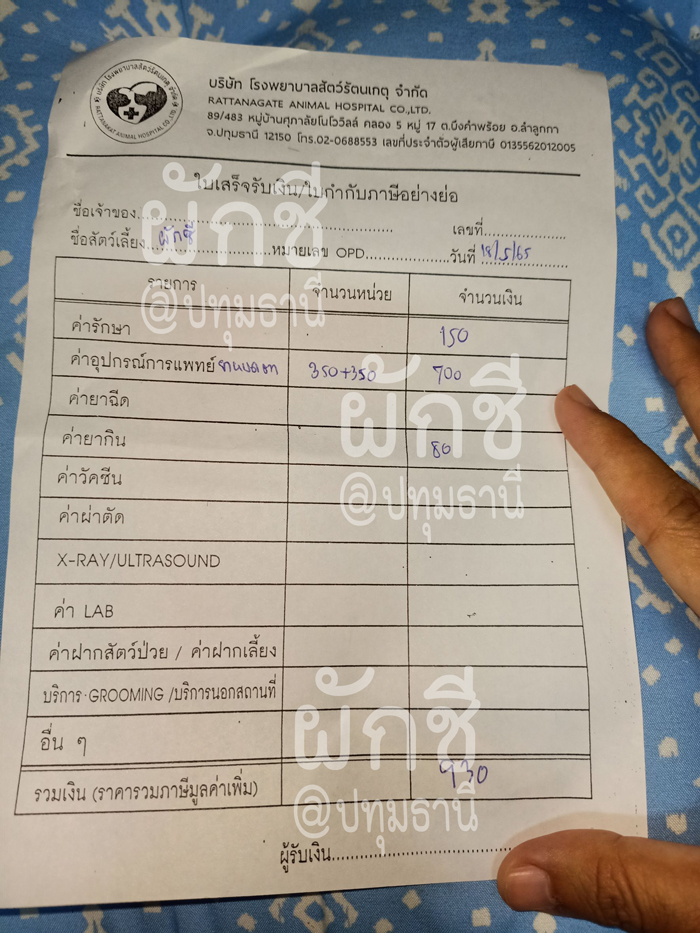 บริษัท โรงพยาบาลสัตว์รัตนเกตุ จำกัด
RATTANAGATE ANIMAL HOSPITAL CO.,LTD.
89/483 หมู่บ้านศุภาลัยโนโววิลล์ คลอง 5 หมู่ 17 ต.บึงคำพร้อย อ.ลำลูกกา
จ.ปทุมธานี 12150 โทร.02-0688553 เลขที่ประจำตัวผู้เสียภาษี 0135562012005
ใบเสร็จรับเงิน/ใบกำกับภาษีอย่างย่อ
ชื่อเจ้าของ เลขที่
ชื่อสัตว์เลี้ยง ผักชี หมายเลข OPD วันที่ 18/5/65
ผักชี
@ปทุมธานี
รายการ จำนวนหน่วย จำนวนเงิน
ค่ารักษา 150
ค่าอุปกรณ์การแพทย์ 350+350 700
ค่ายาฉีด
ผักชี
ค่ายากิน 80
@ปทุมธานี
ค่าวัคซีน
ค่าผ่าตัด
X-RAY/ULTRASOUND
ค่า LAB
ค่าฝากสัตว์ป่วย / ค่าฝากเลี้ยง
บริการ GROOMING /บริการนอกสถานที่
ผักชี
อื่น ๆ
รวมเงิน (ราคารวมภาษีมูลค่าเพิ่ม) 930
@ปทุมธานี
ผู้รับเงิน